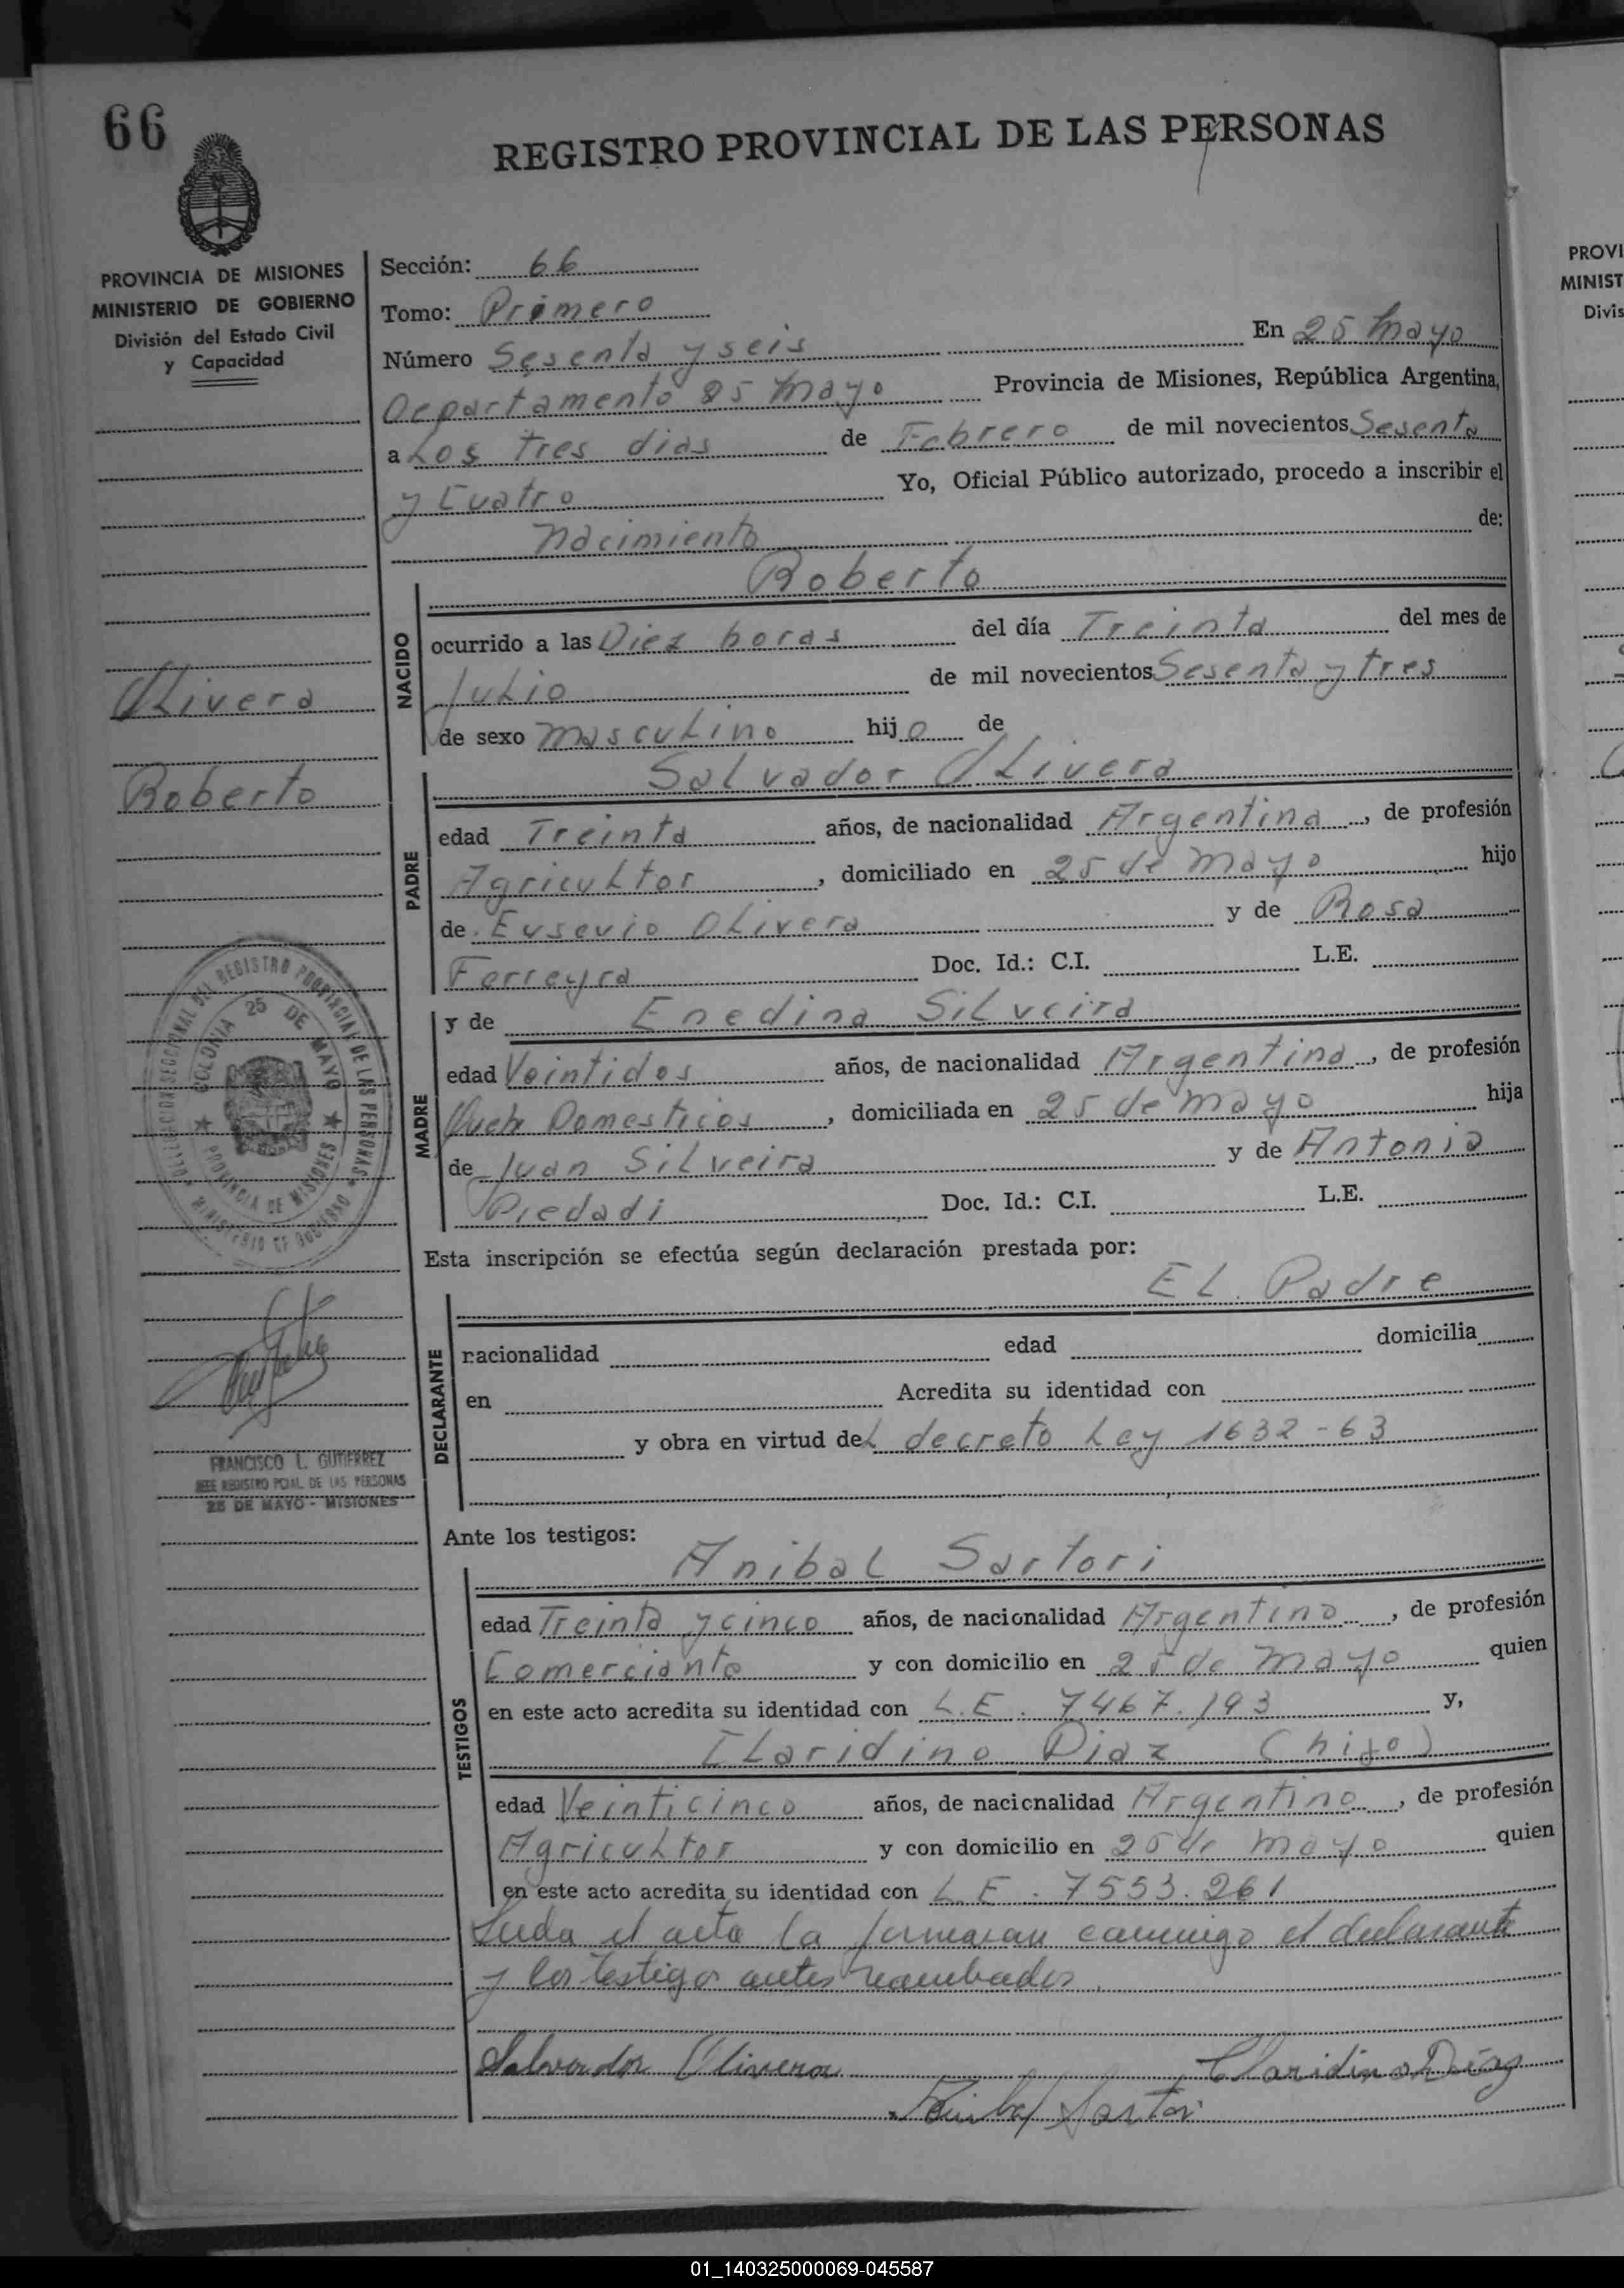 66
REGISTRO PROVINCIAL DE LAS PERSONAS
PROVINCIA DE MISIONES
MINISTERIO DE GOBIERNO
División del Estado Civil
y Capacidad
Sección: 66
Tomo: Primero
Número Sesenta y seis En 25 Mayo
Departamento 25 Mayo Provincia de Misiones, República Argentina,
a Los tres dias de Febrero de mil novecientos Sesenta
y Cuatro Yo, Oficial Público autorizado, procedo a inscribir el
Nacimiento de:
Roberto
NACIDO
ocurrido a las Diez horas del día Treinta del mes de
Julio de mil novecientos Sesenta y tres
de sexo masculino hijo de
Olivera
Roberto
Salvador Olivera
PADRE
edad Treinta años, de nacionalidad Argentina, de profesión
Agricultor, domiciliado en 25 de Mayo hijo
de Eusevio Olivera y de Rosa
Ferreyra Doc. Id.: C.I. L.E.
y de Enedina Silveira
MADRE
edad Veintidos años, de nacionalidad Argentina, de profesión
Queh Domesticos, domiciliada en 25 de Mayo hija
de Juan Silveira y de Antonia
Piedadi Doc. Id.: C.I. L.E.
DELEGACION SECCIONAL DEL REGISTRO PROVINCIAL DE LAS PERSONAS
MINISTERIO DE GOBIERNO
COLONIA 25 DE MAYO
PROVINCIA DE MISIONES
Esta inscripción se efectúa según declaración prestada por:
El Padre
DECLARANTE
nacionalidad edad domicilia
en Acredita su identidad con
y obra en virtud del decreto Ley 1632-63
FRANCISCO L. GUTIERREZ
JEFE REGISTRO PCIAL. DE LAS PERSONAS
25 DE MAYO - MISIONES
Ante los testigos:
Anibal Sartori
TESTIGOS
edad Treinta y cinco años, de nacionalidad Argentino, de profesión
Comerciante y con domicilio en 25 de Mayo quien
en este acto acredita su identidad con L.E. 7467.193 y,
Claridino Diaz (hijo)
edad Veinticinco años, de nacionalidad Argentino, de profesión
Agricultor y con domicilio en 25 de Mayo quien
en este acto acredita su identidad con L.E. 7553.261
Leida el acta la firmaran conmigo el declarante
y los testigos antes nombrados.
Salvador Olivera Claridino Diaz
Anibal Sartori
PROVI
MINIST
Divis
01_140325000069-045587